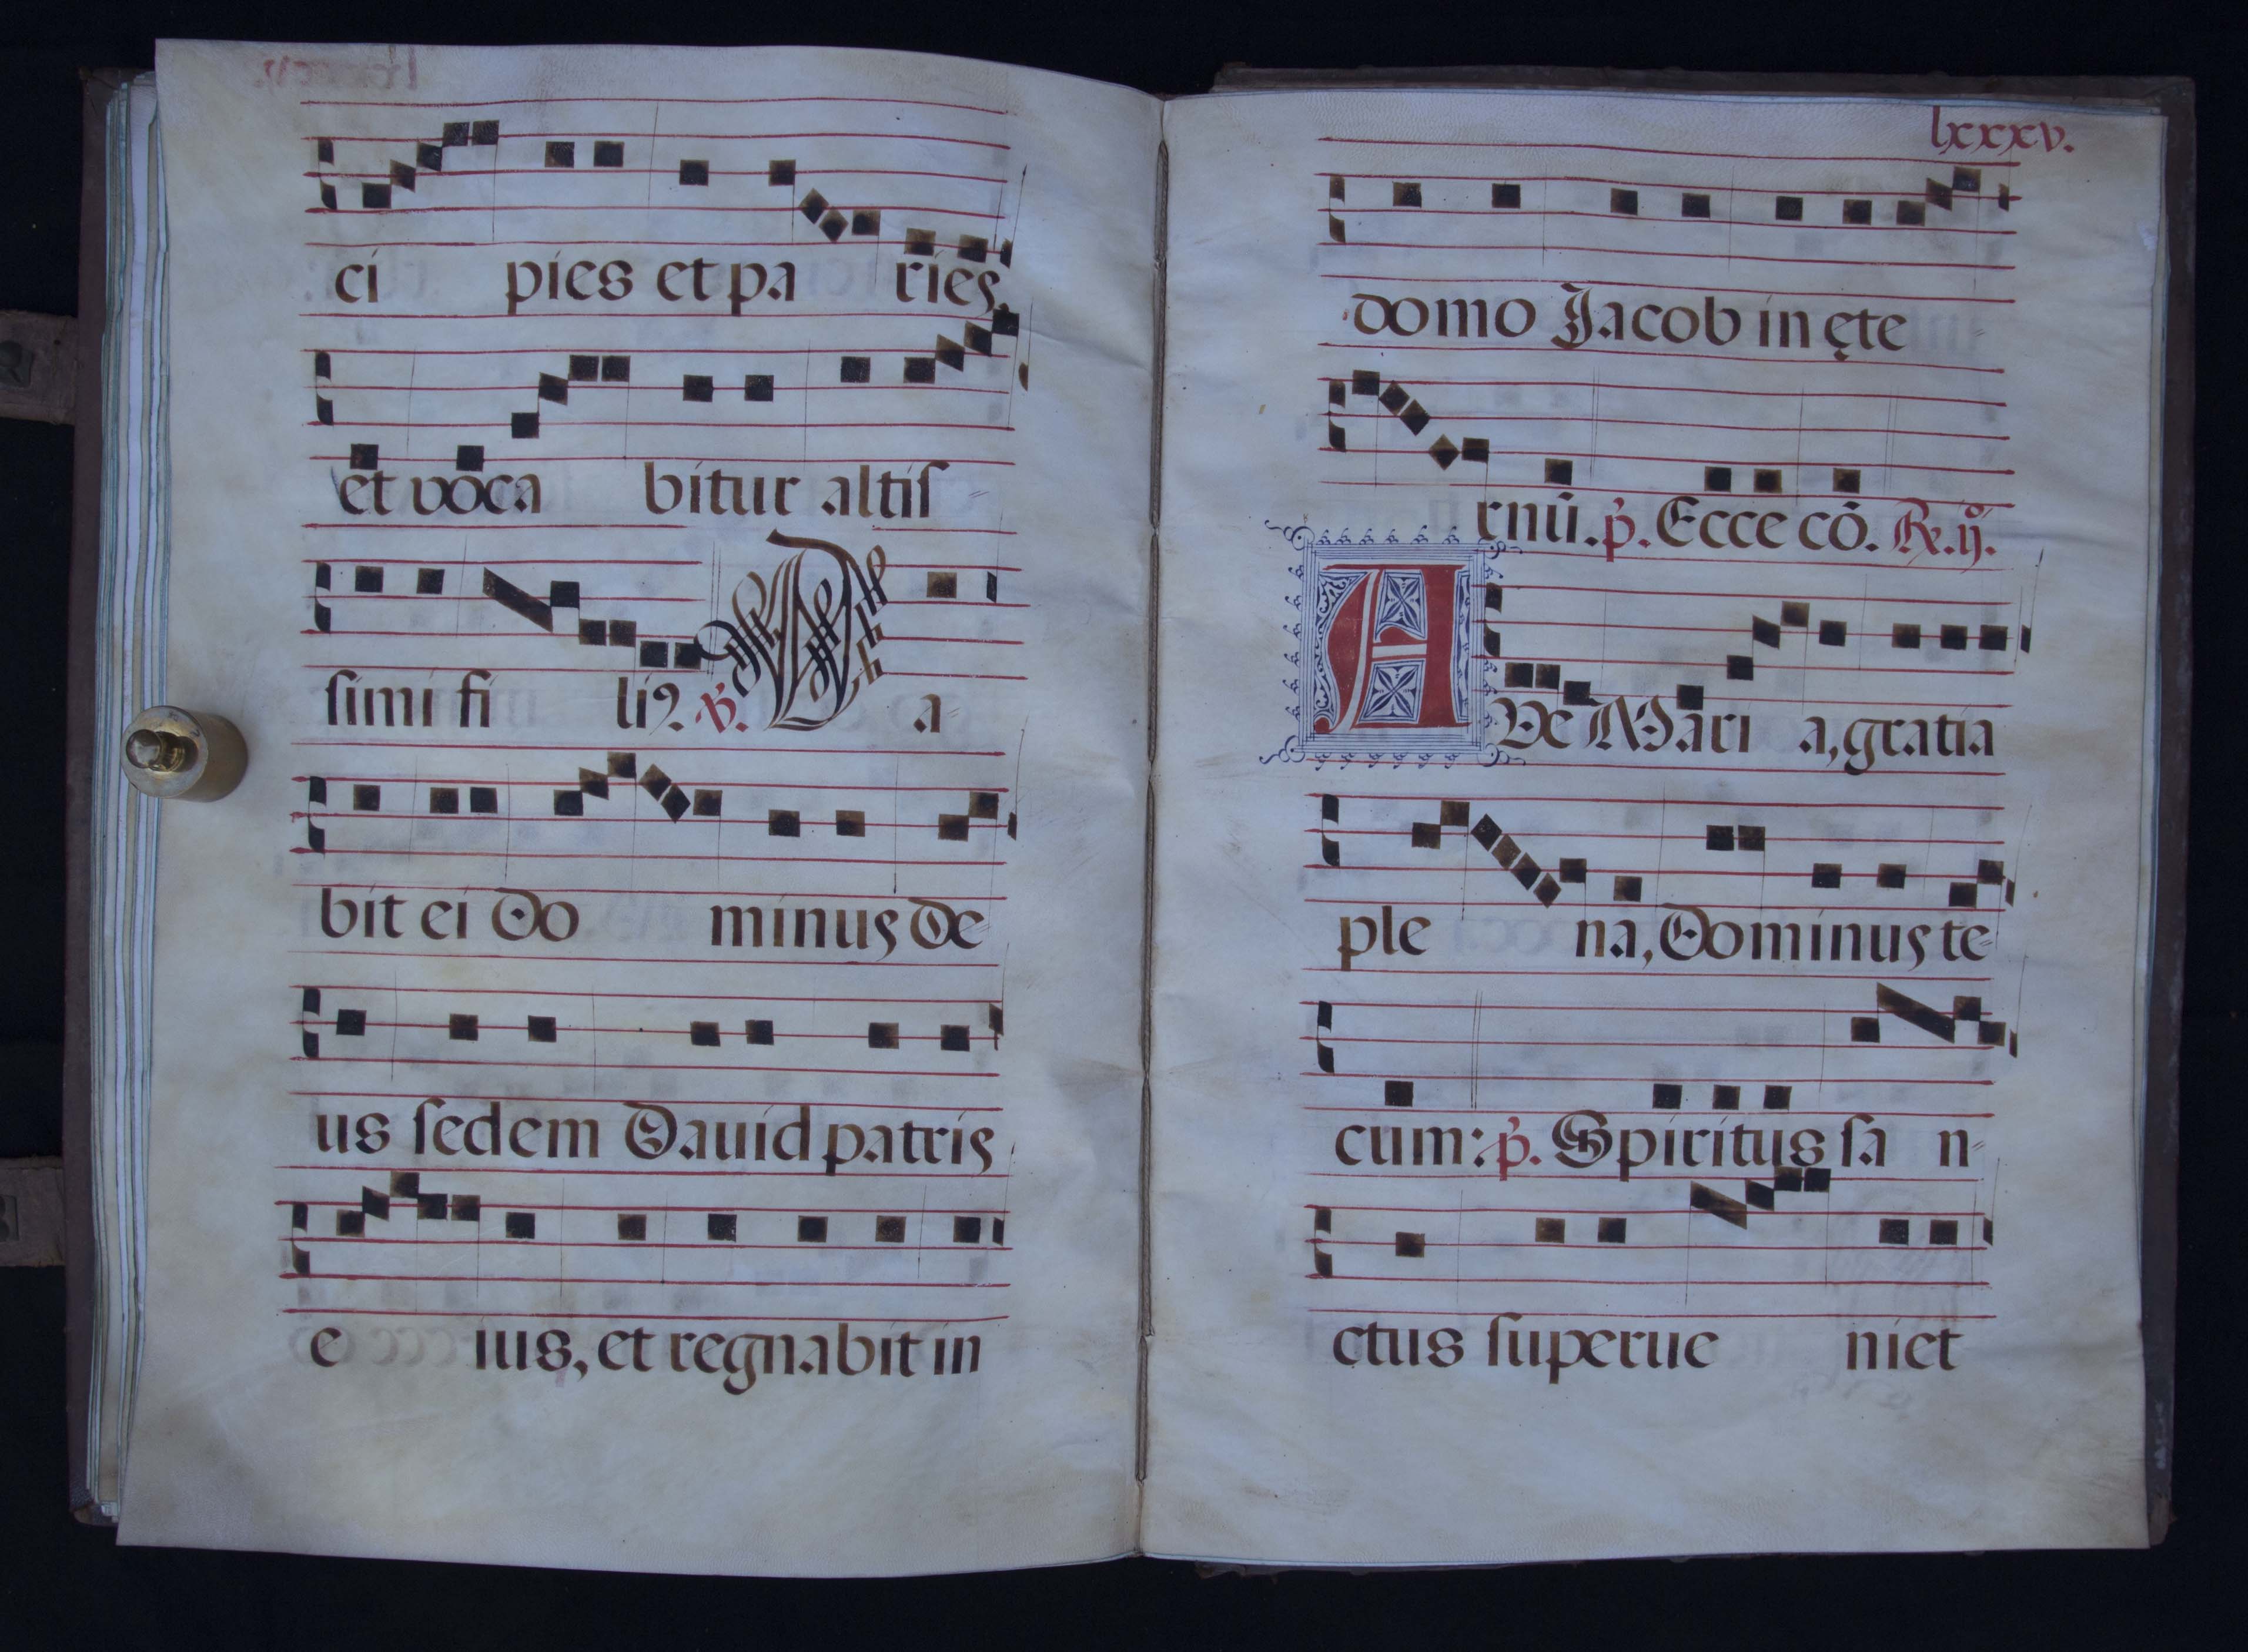 ci pies et pa ries,
et voca bitur altiſ=
ſimi fi li9. v. Da=
bit ei Do minus De=
us ſedem Dauid patris
e ius, et regnabit in
lxxxv.
domo Jacob in ęte
rnū. p. Ecce cō. R. ijº.
AVe Mari a, gratia
ple na, Dominus te=
cum: p. Spiritus ſa n=
ctus ſuperue niet